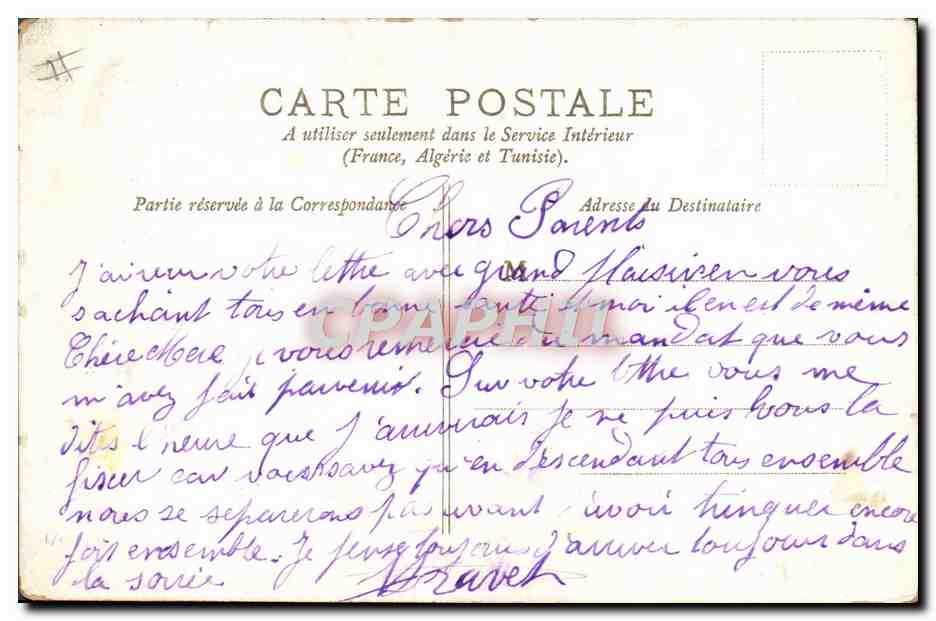 CARTE POSTALE
A utiliser seulement dans le Service Intérieur
(France, Algérie et Tunisie).
Partie réservée à la Correspondance
Adresse du Destinataire
M
Chers Parents
J'ai reçu votre lettre avec grand plaisir en vous
sachant tous en bonne santé et moi il en est de même
Chère Mère je vous remercie du mandat que vous
m'avez fait parvenir. Sur votre lettre vous me
dites l'heure que j'arriverais je ne puis vous la
fixer car vous savez qu'en descendant tous ensemble
nous se separerons pas avant d'avoir trinquer encore
fois ensemble. Je pense toujours d'arriver toujours dans
la soirée
CPAPHIL